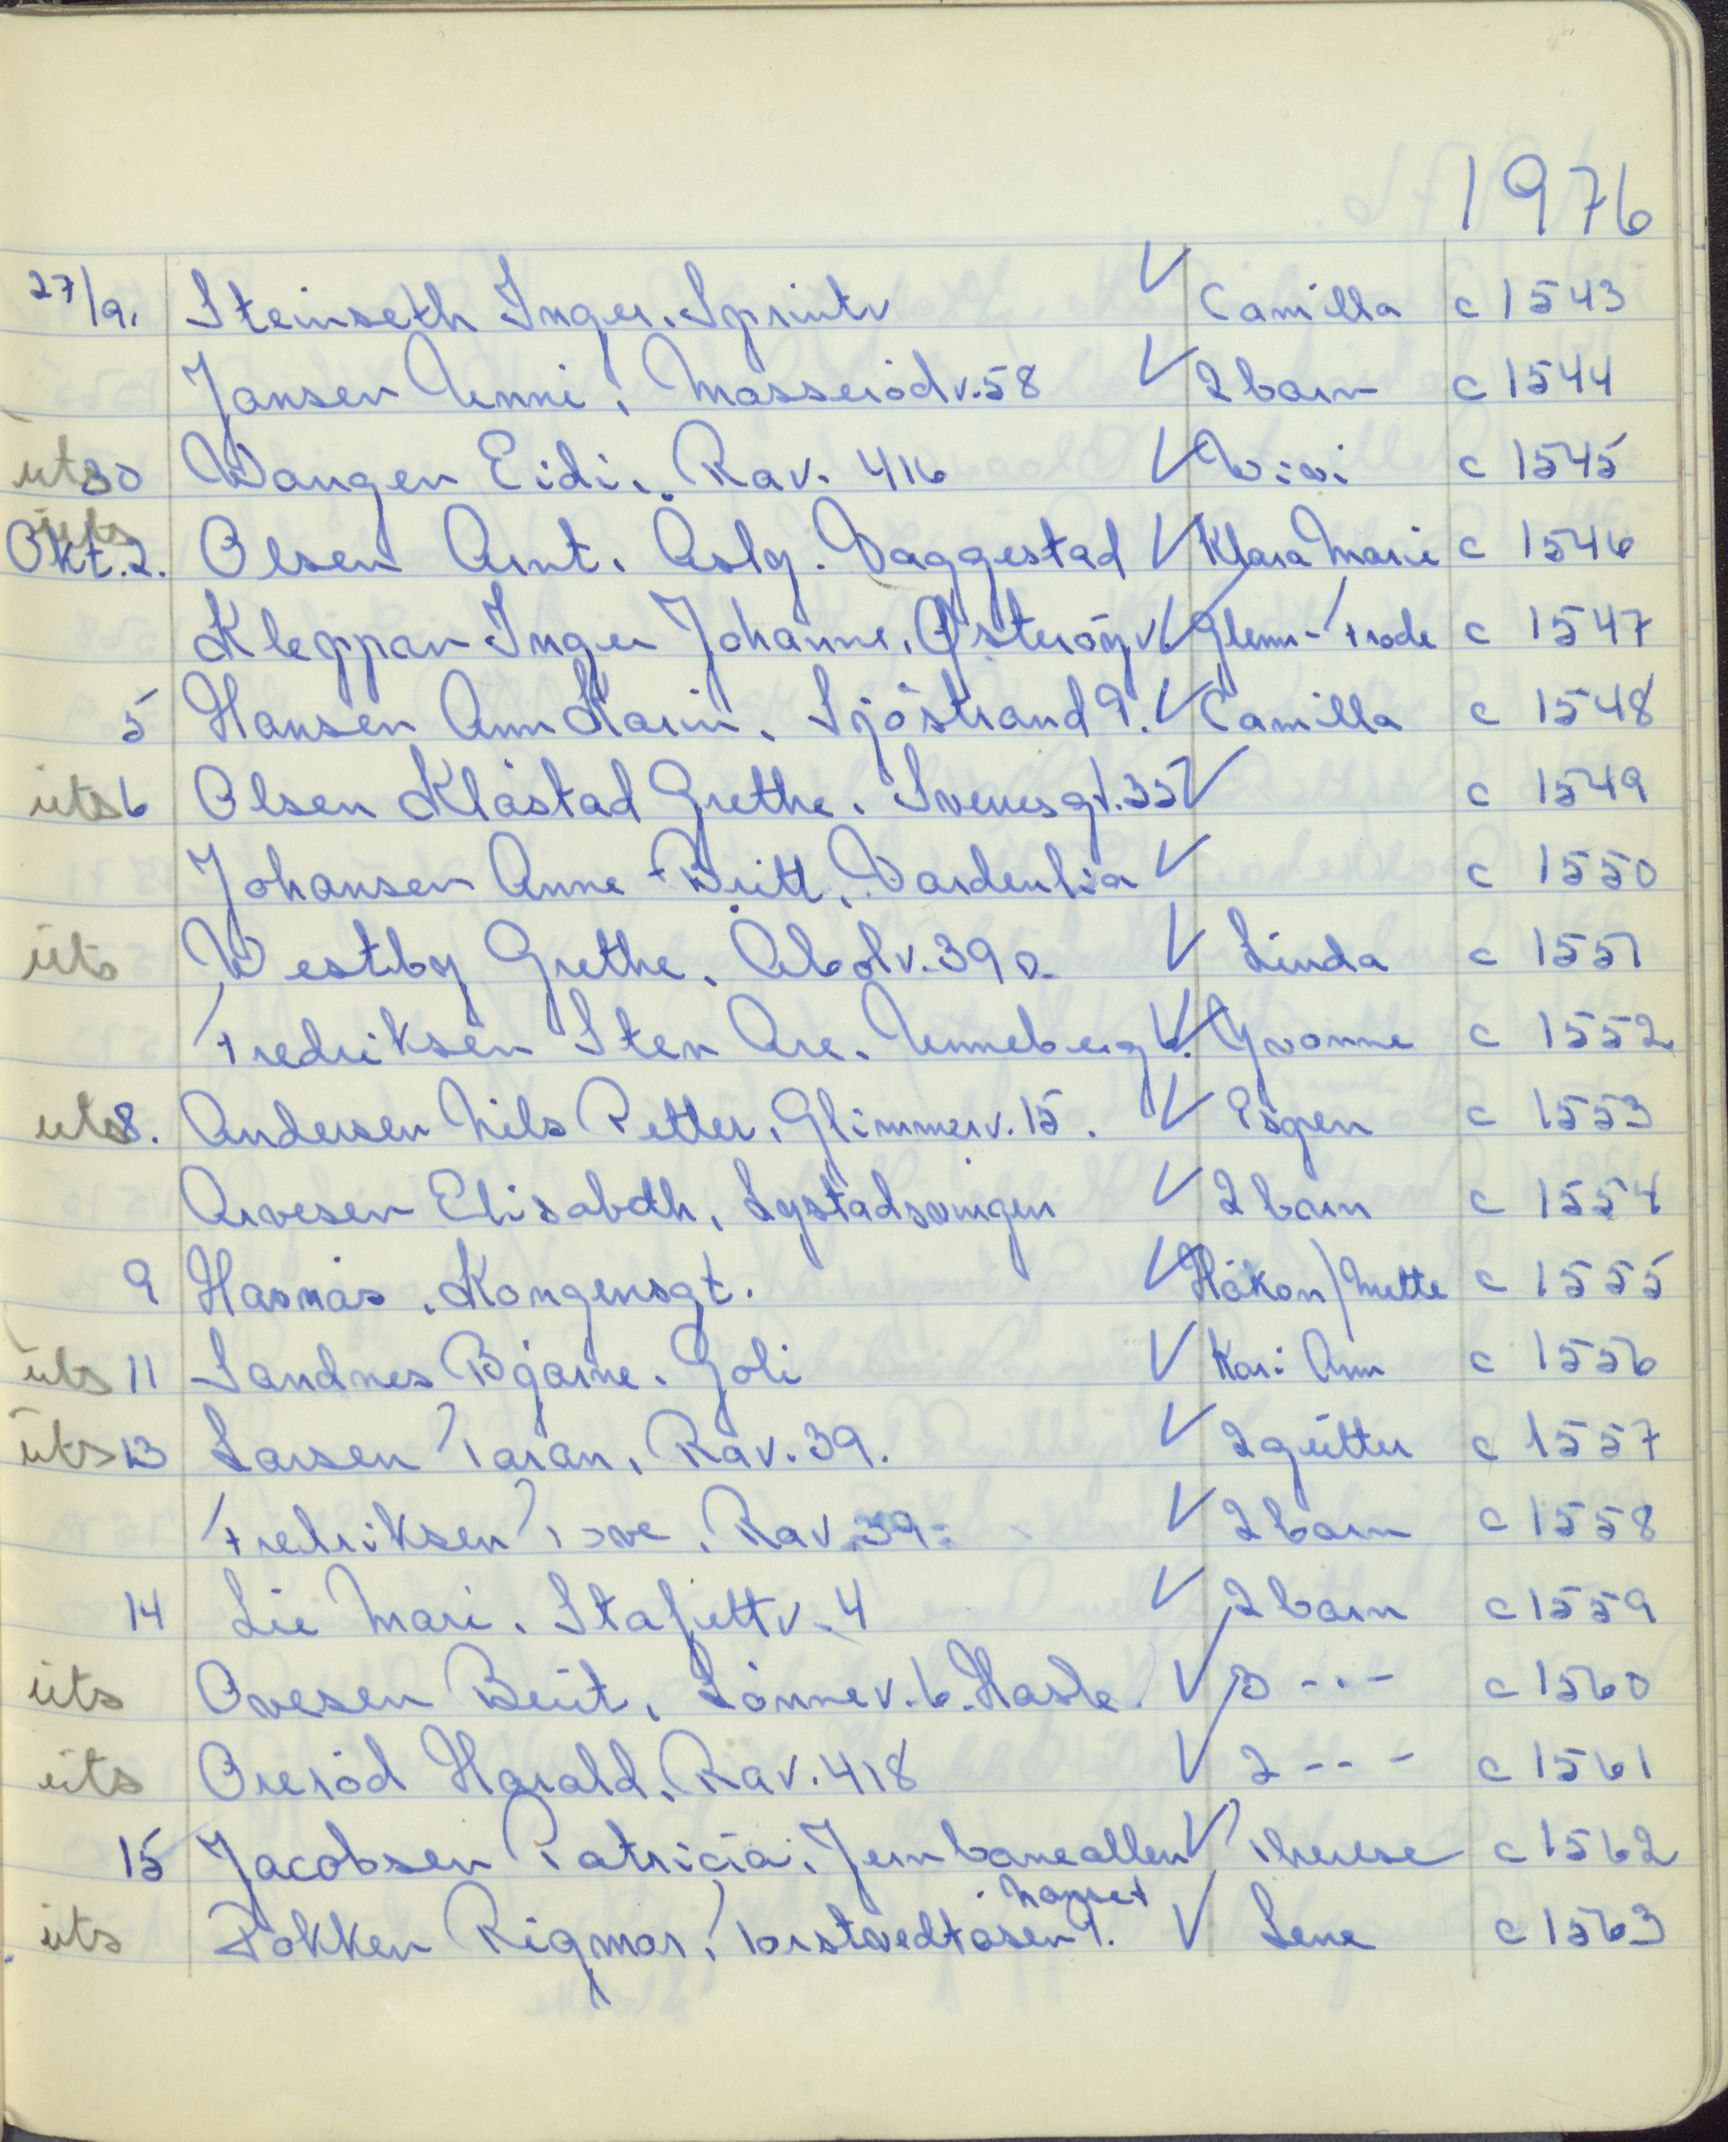 1976
27/9. Steinseth Inger. Sprintv ✓ Camilla c 1543
Jansen Unni, Masseródv. 58 ✓ 2 barn c 1544
uts 30 Wangen Eidi. Rav. 416 ✓ Vivi c 1545
uts
Okt. 2. Olsen Arnt. Aslg. Vaggestad ✓ Klara Marie c 1546
Kleppan Inger Johanne. Østeröyv. ✓ Glenn-Frode c 1547
5 Hansen Ann Karin. Sjöstrand 9. ✓ Camilla c 1548
uts 6 Olsen Klåstad Grethe. Svenesgt. 35 ✓ c 1549
Johansen Anne-Britt. Vardenlia ✓ c 1550
uts Westby Grethe. Abolv. 39 ✓ Linda c 1551
Fredriksen Sten Are. Unneberg ✓ Yvonne c 1552
uts 8. Andersen Nils Petter. Glimmerv. 15. ✓ Espen c 1553
Arvesen Elisabeth, Lystadsvingen ✓ 2 barn c 1554
9 Havnås. Kongensgt. ✓ Håkon/Mette c 1555
uts 11 Sandnes Bjarne. Goli ✓ Kari Ann c 1556
uts 13 Larsen Taran, Rav. 39. ✓ 2 gütter c 1557
Fredriksen Tove. Rav. 39. ✓ 2 barn c 1558
14 Lie Mari. Stafettv. 4 ✓ 2 barn c 1559
uts Ovesen Berit, Lönnev. 6. Hasle. ✓ 3 --- c 1560
uts Oreröd Harald. Rav. 418 ✓ 2 --- c 1561
15 Jacobsen Patricia. Jernbanealleen ✓ Therese c 1562
uts Fokken Rigmor, Torstvedtåsen 1. ✓ Lene c 1563